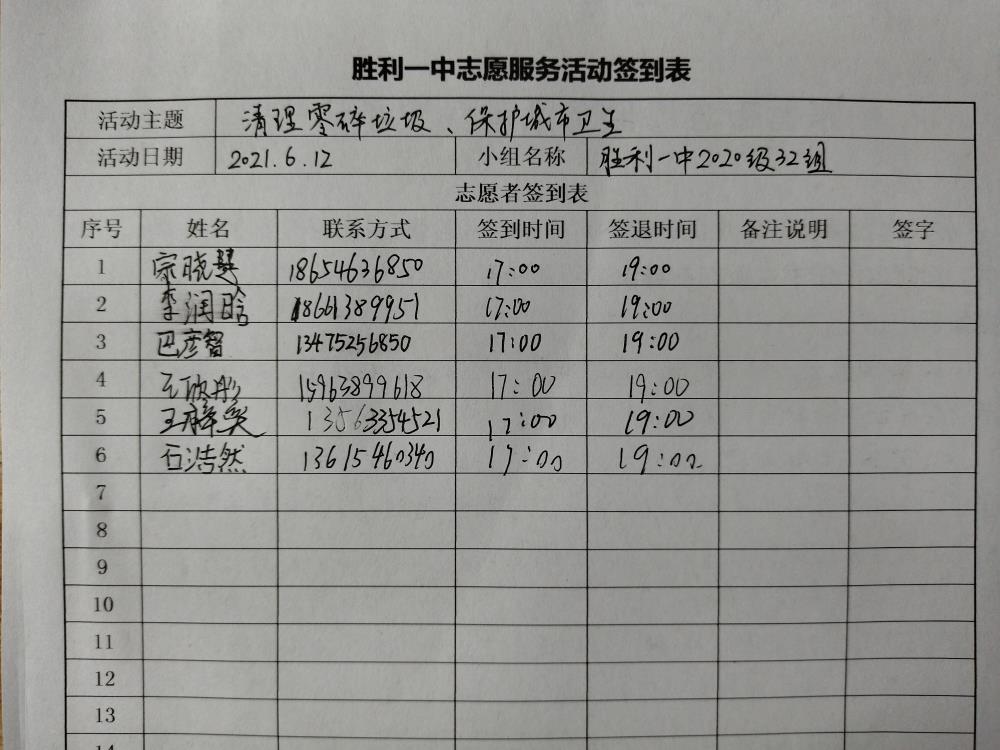 胜利一中志愿服务活动签到表
活动主题 清理零碎垃圾、保护城市卫生
活动日期 2021.6.12 小组名称 胜利一中2020级32组
志愿者签到表
序号 姓名 联系方式 签到时间 签退时间 备注说明 签字
1 宗晓慧 18654636850 17:00 19:00
2 李润晗 18661389951 17:00 19:00
3 巴彦智 13475256850 17:00 19:00
4 王欣彤 15963899618 17:00 19:00
5 13563354521 17:00 19:00
6 石浩然 13615460340 17:00 19:00
7
8
9
10
11
12
13
14